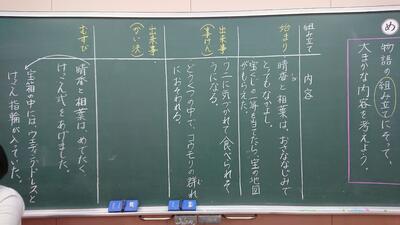 め
物語の組み立てにそって、
大まかな内容を考えよう。
組み立て
内容
始まり
晴香と相葉は、おさななじみで
とってもなかよし。
宝くじの一等を当てたら、宝の地図
がもらえた。
出来事
(事けん)
ワニに気づかれて食べられそ
うになる。
どうくつの中で、コウモリの群れ
におそわれる。
出来事
(かい決)
むすび
晴香と相葉は、めでたく
けっこん式をあげました。
宝箱の中には、ウエディングドレスと
けっこん指輪が入ってた。